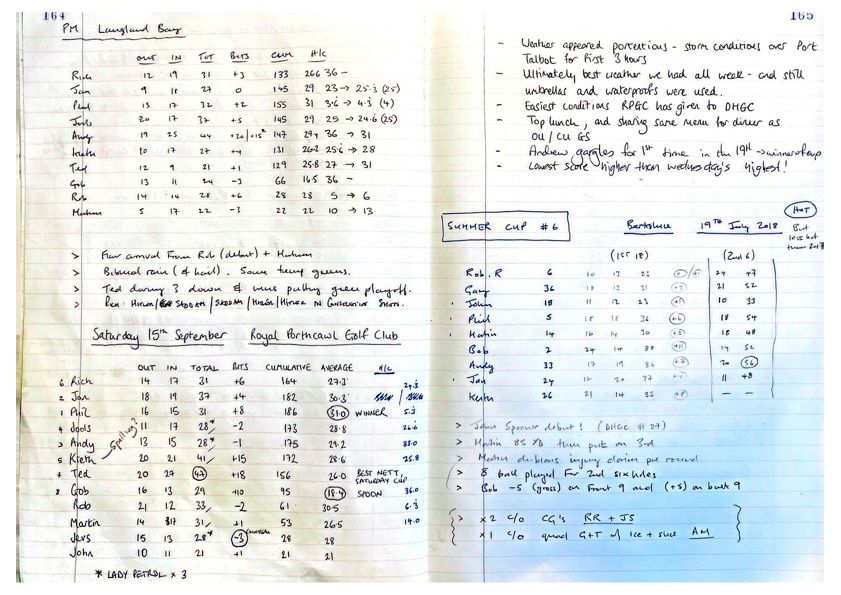 164
PM Langland Bay
OUT IN TOT BITS CUM H/C
Rich 12 19 31 +3 133 26.6 36 -
Jan 9 18 27 0 145 29 23 → 25.3 (25)
Phil 15 17 32 +2 155 31 3.6 → 4.3 (4)
Jools 20 17 37 +5 145 29 25 → 24.6 (25)
Andy 19 25 44 147 29.4 36 → 31
Kieth 10 17 27 +4 131 26.2 25.6 → 28
Ted 12 9 21 +1 129 25.8 27 → 31
Gob 13 11 24 -3 66 16.5 36 -
Rob 14 14 28 +6 28 28 5 → 6
Martin 5 17 22 -3 22 22 10 → 13
> arrival from Rob (debut) + Martin
> rain (& hail). Some greens.
> Ted during 3 down & putting green playoff.
>
Saturday 15th September Royal Porthcawl Golf Club
OUT IN TOTAL BITS CUMULATIVE AVERAGE H/C
6 Rich 14 17 31 +6 164 27.3 24.3
2 Jan 18 19 37 +4 182 30.3
1 Phil 16 15 31 +8 186 31.0 WINNER 5.3
4 Jools 11 17 28* -2 173 28.8 26.6
3 Andy 13 15 28* -1 175 29.2 33.0
5 Kieth 20 21 41 +15 172 28.6 25.8
Spelling?
7 Ted 20 27 47 +18 156 26.0 BEST NETT, SATURDAY CUP
8 Gob 16 13 29 +10 95 18.4 SPOON 36.0
Rob 21 12 33 -2 61 30.5 6.3
Martin 14 17 31 +1 53 26.5 14.0
Jevs 15 13 28* -3 28 28
John 10 11 21 +1 21 21
* LADY PETROL x 3
165
- Weather appeared portentious - storm conditions over Port
Talbot for first 3 hours
- Ultimately best weather we had all week - and still
umbrellas and waterproofs were used.
- Easiest conditions RPGC has given to DHGC
- Top lunch, and sharing same menu for dinner as
OU / CU GS
- Andrew gargles for 1st time in the 19th → winner of cup
- Lowest score higher than Wednesday's highest!
SUMMER CUP #6 Berkshire 19TH July 2018
HOT
But
less hot
than 2017
(1st 18) (2nd 6)
Rob.R 6 10 13 23 24 47
Gary 36 18 13 31 21 52
John 18 11 12 23 10 33
Phil 5 18 18 36 +6 18 54
Martin 14 16 14 30 18 48
Bob 2 24 14 38 14 52
Andy 33 17 19 36 +7 20 56
Jan 24 17 20 37 11 48
Kieth 26 21 14 35 - -
> John Spooner debut! (DHGC #27)
> Martin 85 YD then putt on 3rd
> Martin dubious injury claim per round
> 8 ball played for 2nd six holes
> Bob -5 (gross) on front 9 and (+5) on back 9
> x2 c/o CG's RR + JS
> x1 c/o quad G+T w/ ice + slice AM